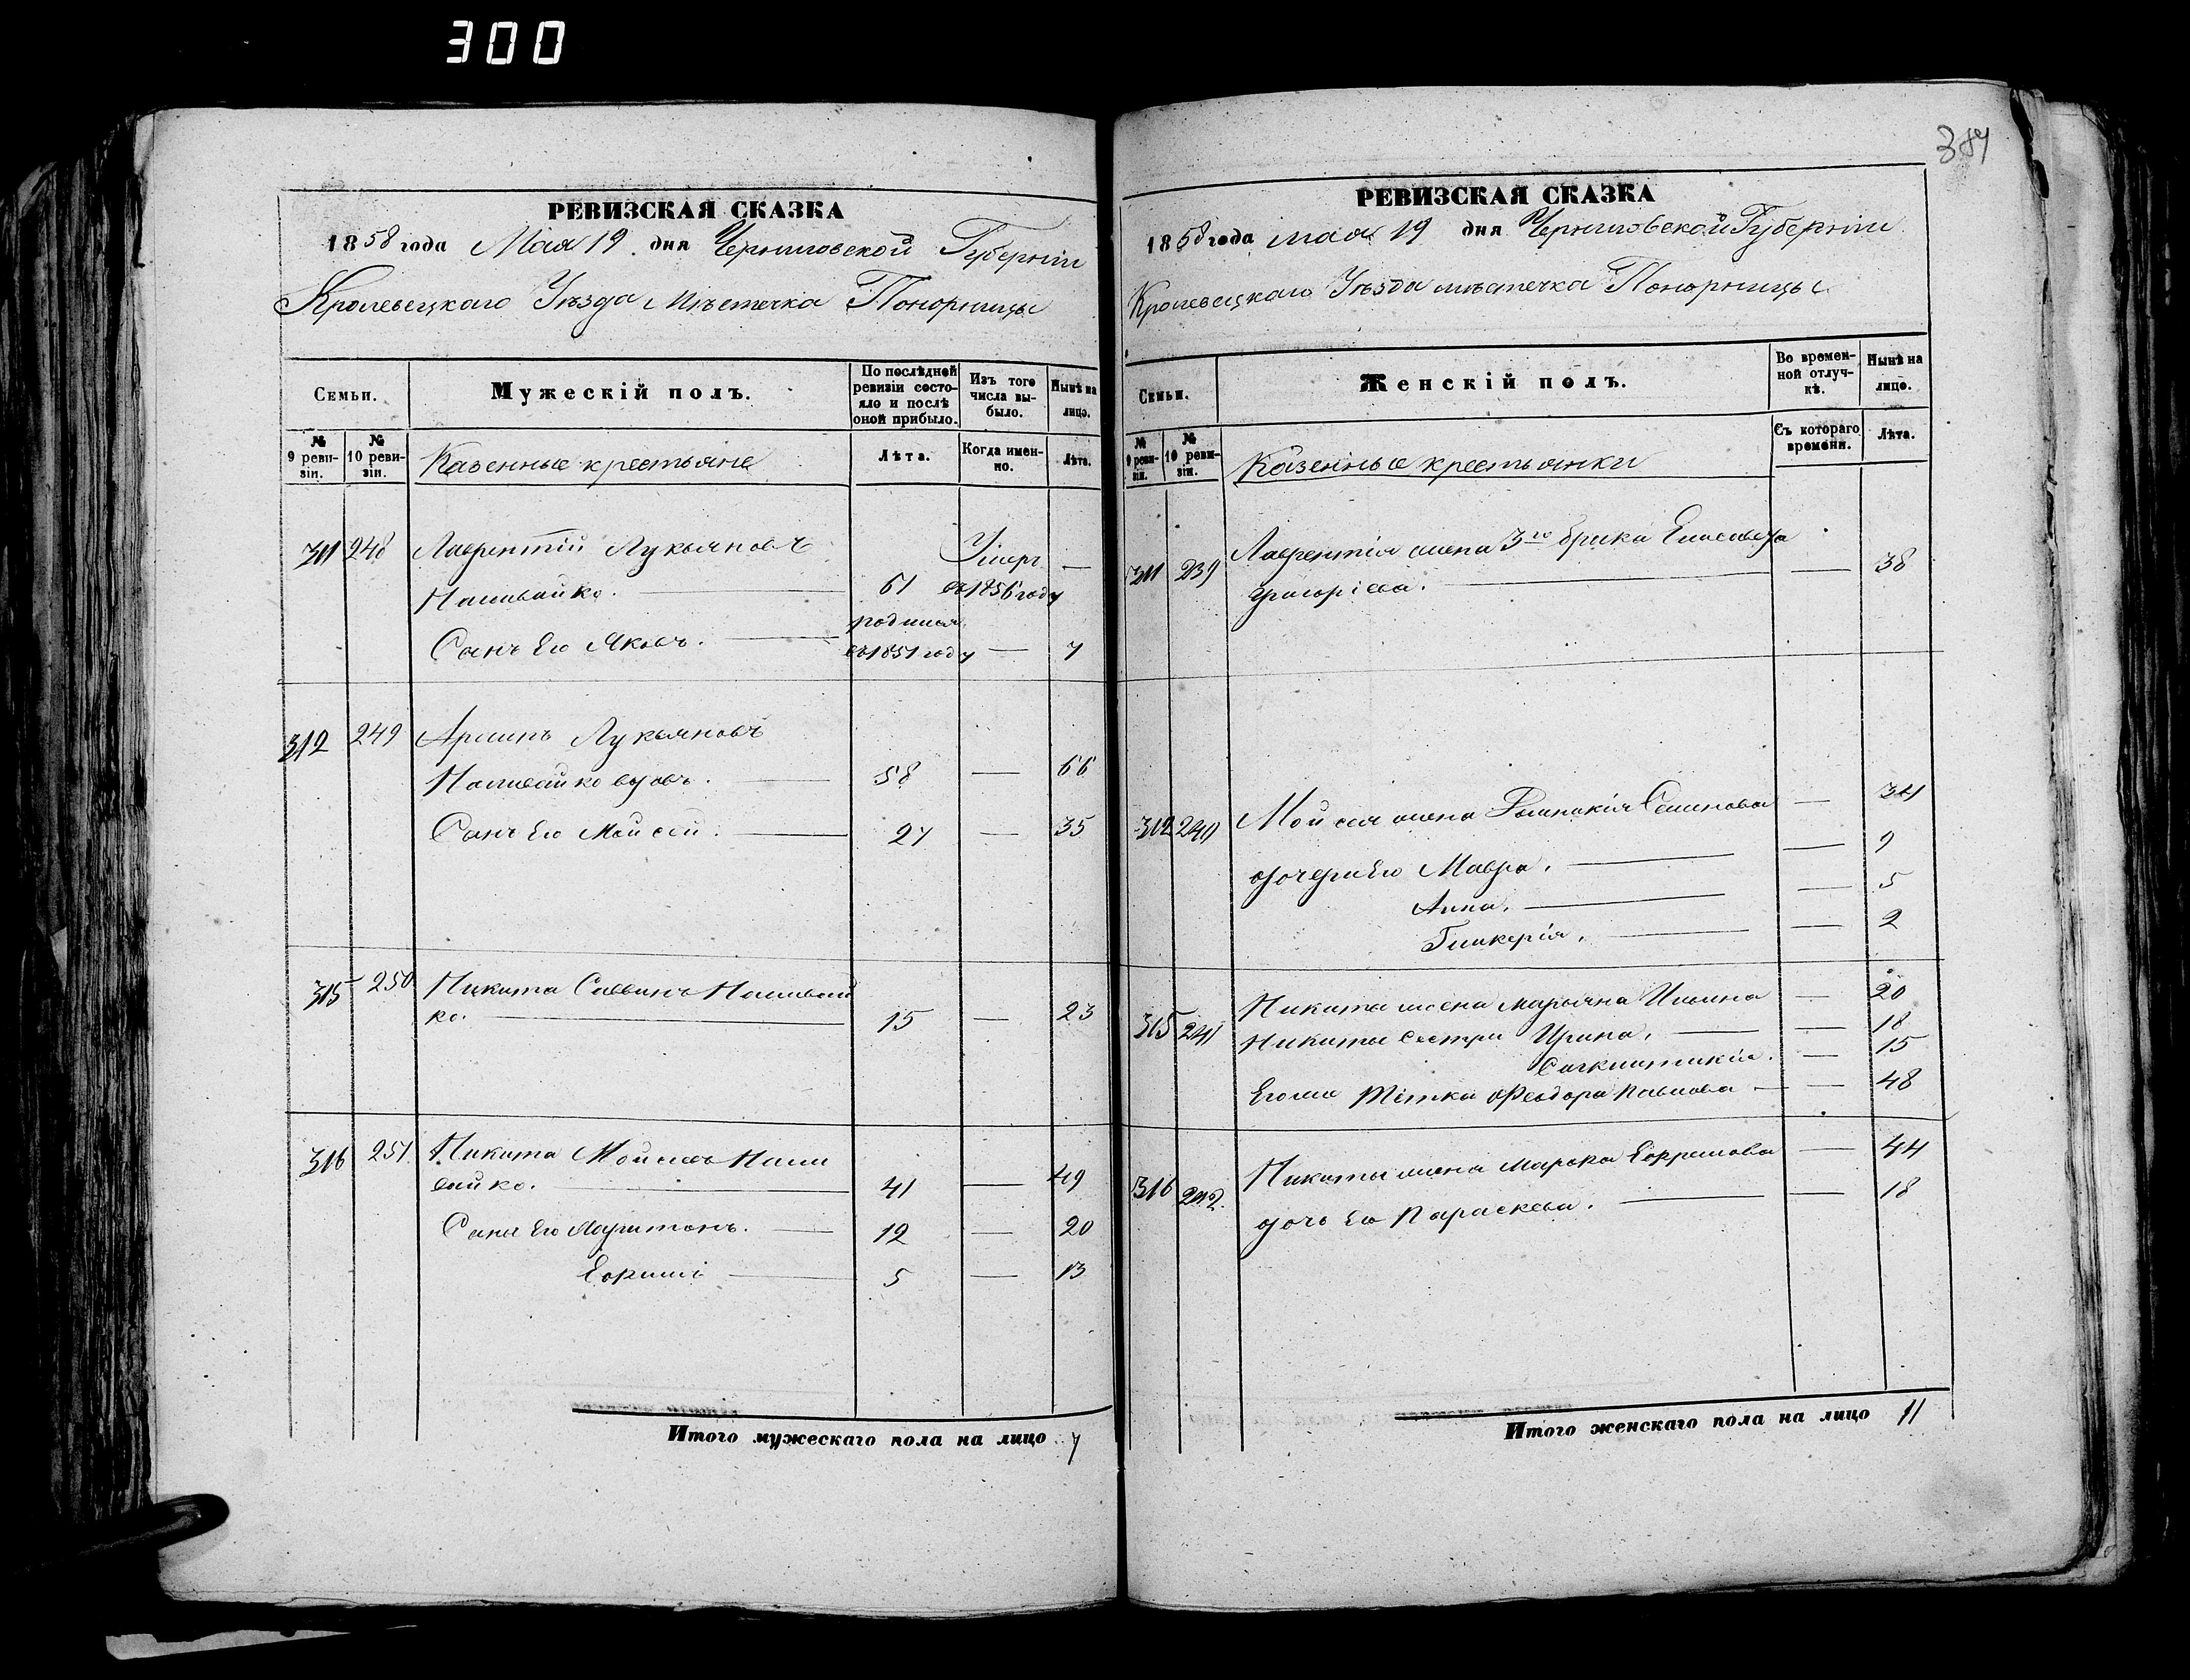 300
РЕВИЗСКАЯ СКАЗКА
1858 года Мая 19 дня Черниговской Губерніи
Кролевецкаго Уѣзда Мѣстечка Понорницы
Семьи.
Мужескій полъ.
По послѣдней ревизіи состояло и послѣ оной прибыло.
Изъ того числа выбыло.
Нынѣ на лицо.
№ 9 ревизіи.
№ 10 ревизіи.
Казенные крестьяне
Лѣта.
Когда именно.
Лѣта.
311 248 Лаврентій Лукьяновъ Умеръ —
Наливайко. 61 въ 1856 году
родился
Сынъ Его Яковъ. въ 1851 году — 7
312 249 Архипъ Лукьяновъ
Наливайко вдовъ. 58 — 66
Сынъ Его Мойсей. 27 — 35
315 250 Никита Саввинъ Наливай
ко. 15 — 23
316 251 Никита Мойсеевъ Нали
вайко. 41 — 49
Сыны Его Харитонъ. 12 — 20
5 — 13
Итого мужескаго пола на лицо 7
384
РЕВИЗСКАЯ СКАЗКА
1858 года мая 19 дня Черниговской Губерніи
Кролевецкаго Уѣзда мѣстечка Понорницы
Семьи.
Женскій полъ.
Во временной отлучкѣ.
Нынѣ на лицо.
№ 9 ревизіи.
№ 10 ревизіи.
Казенные крестьянки
Съ котораго времени.
Лѣта.
311 239 Лаврентія жена 3го брака Елисавета
Григоріева. — 38
312 240 Мойсея жена Семенова — 34
дочери Его Мавра. — 9
Анна. — 5
Гликерія. — 2
315 241 Никиты жена Марьяна Ильина — 20
Никиты сестры Ирина. — 18
— 15
Егоже тётка Феодора Павлова — 48
316 242. Никиты жена Марфа Ефремова — 44
дочь Его Параскева. — 18
Итого женскаго пола на лицо 11